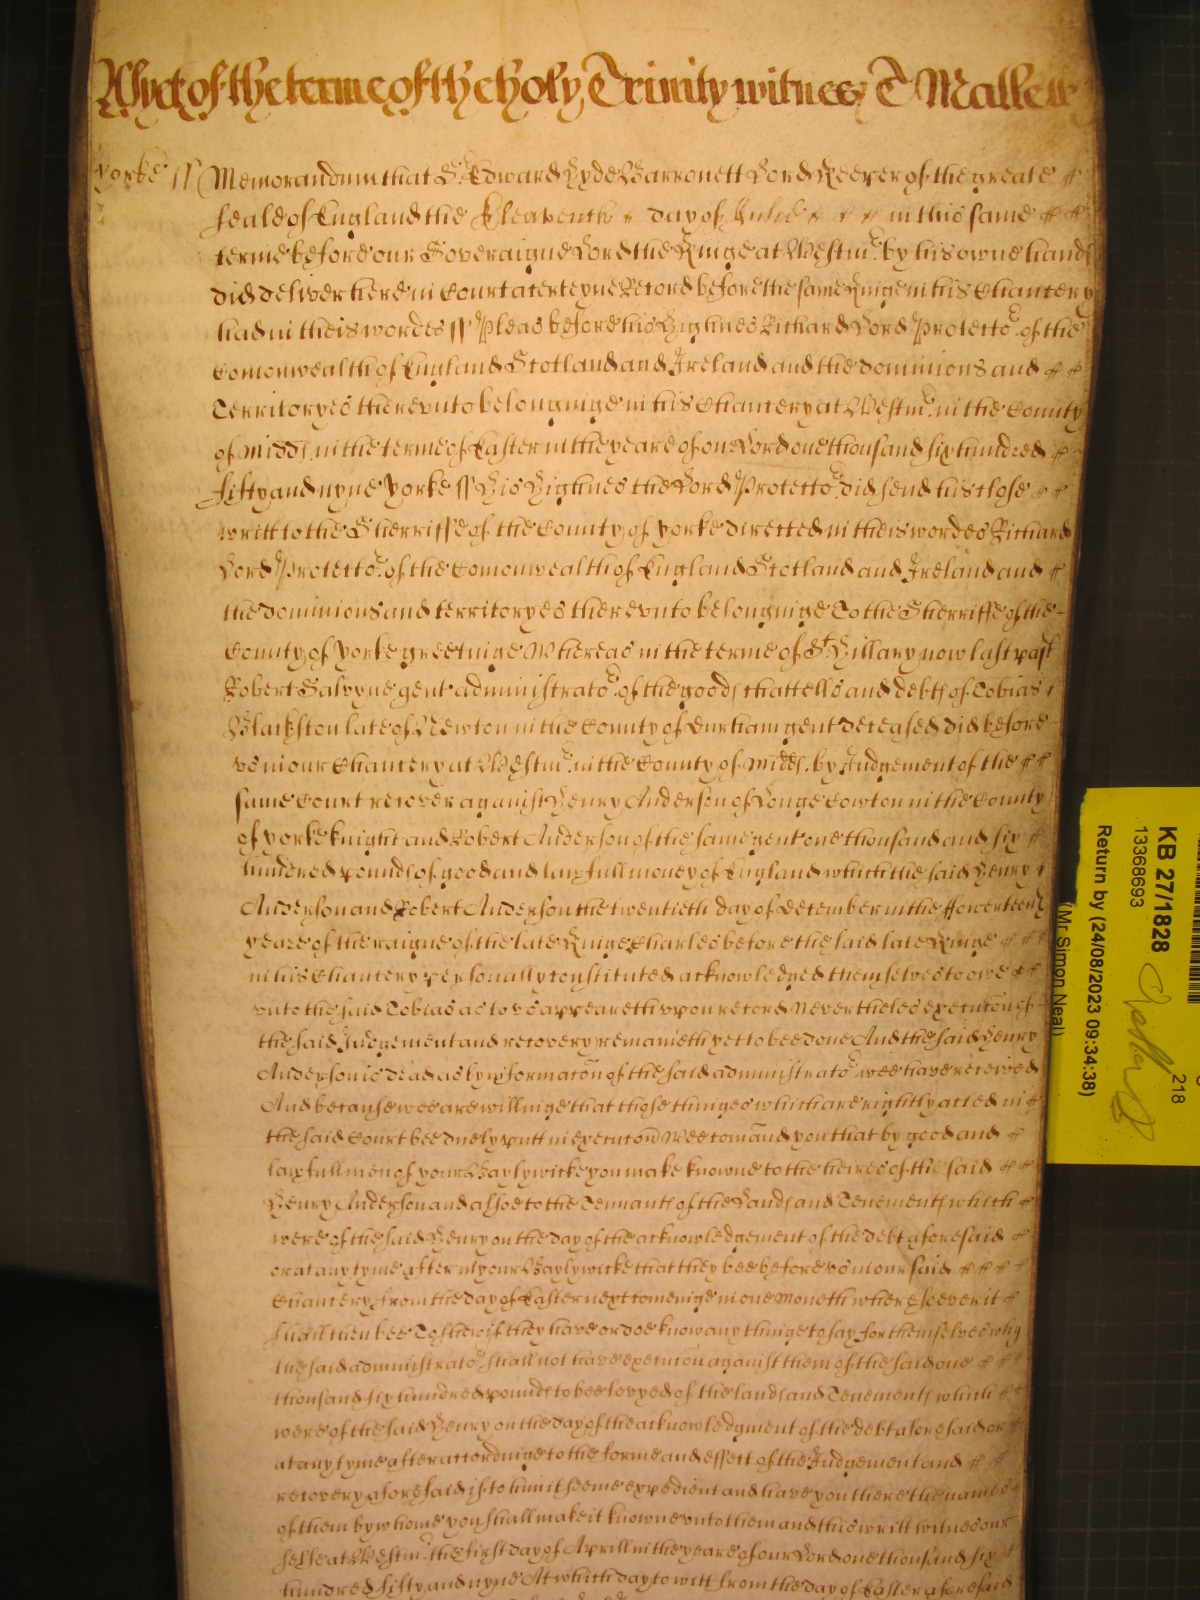 Yet of the terme of the holy Trinity witnes T Mallett
Yorke ss Memorandum that Sr. Edward Hyde Barronett Lord Keeper of the greate
seale of England the Eleaventh day of Julie in this same
terme before our Soveraigne Lord the Kinge at Westmr. by his owne hands
did deliver here in Court a certeyne Record before the same Kinge in his Chancery
had in theis wordes ss Pleas before his Highnes Richard Lord Protector. of the
Comonwealth of England Scotland and Ireland and the dominions and
Territoryes thereunto belonginge in his Chancery at Westmr. in the County
of Midds. in the terme of Easter in the yeare of our Lord one thousand six hundred
fifty and nyne Yorke ss His Highnes the Lord Protector. did send his close
writt to the Sherriffe of the County of Yorke directed in theis wordes Richard
Lord Protector. of the Comonwealth of England Scotland and Ireland and
the dominions and territoryes thereunto belonginge To the Sherriffe of the
County of Yorke greetinge Whereas in the terme of St. Hillary now last past
Robert Salvyne gent administrator. of the goods chattells and debts of Tobias
Blackston late of Newton in the County of Durham gent deceased did before
us in our Chancery at Westmr. in the County of Midds. by Judgement of the
same Court recover against Henry Anderson of Longe Cowton in the County
of Yorke knight and Robert Anderson of the same gent one thousand and six
hundred pounds of good and lawfull money of England which the said Henry
Anderson and Robert Anderson the twentieth day of December in the fowerteenth
yeare of the raigne of the late Kinge Charles before the said late Kinge
in his Chancery personally constituted acknowledged themselves to owe
unto the said Tobias as to us appeareth upon record Nevertheles execution of
the said Judgement and recovery remaineth yet to bee done And the said Henry
Anderson is dead as by informacon of the said administrator. wee have received
And because wee are willinge that those thinges which are rightly acted in
the said Court bee duely putt in execucon Wee comand you that by good and
lawfull men of your Baylywicke you make knowne to the heires of the said
Henry Anderson and alsoe to the Tennants of the Lands and Tenements which
were of the said Henry on the day of the acknowledgement of the debt aforesaid
or at any tyme after in your Baylywicke that they bee before us in our said
Chancery from the day of Easter next cominge in one Moneth wheresoever it
shall then bee To shew if they have or doe know any thinge to say for themselves why
the said administrator. shall not have execution against them of the said one
thousand six hundred pounds to bee levyed of the lands and Tenements which
were of the said Henry on the day of the acknowledgment of the debt aforesaid or
at any tyme after accordinge to the forme and effect of the Judgement and
recovery aforesaid if to him it seeme expedient and have you there the names
of them by whome you shall make it knowne unto them and this writt witnes our
selfe at Westmr. the first day of Aprill in the yeare of our Lord one thousand six
hundred fifty and nyne At which day to witt from the day of Easter aforesaid
KB 27/1828
13368693
218
Return by (24/08/2023 09:34:38)
(Mr Simon Neal)